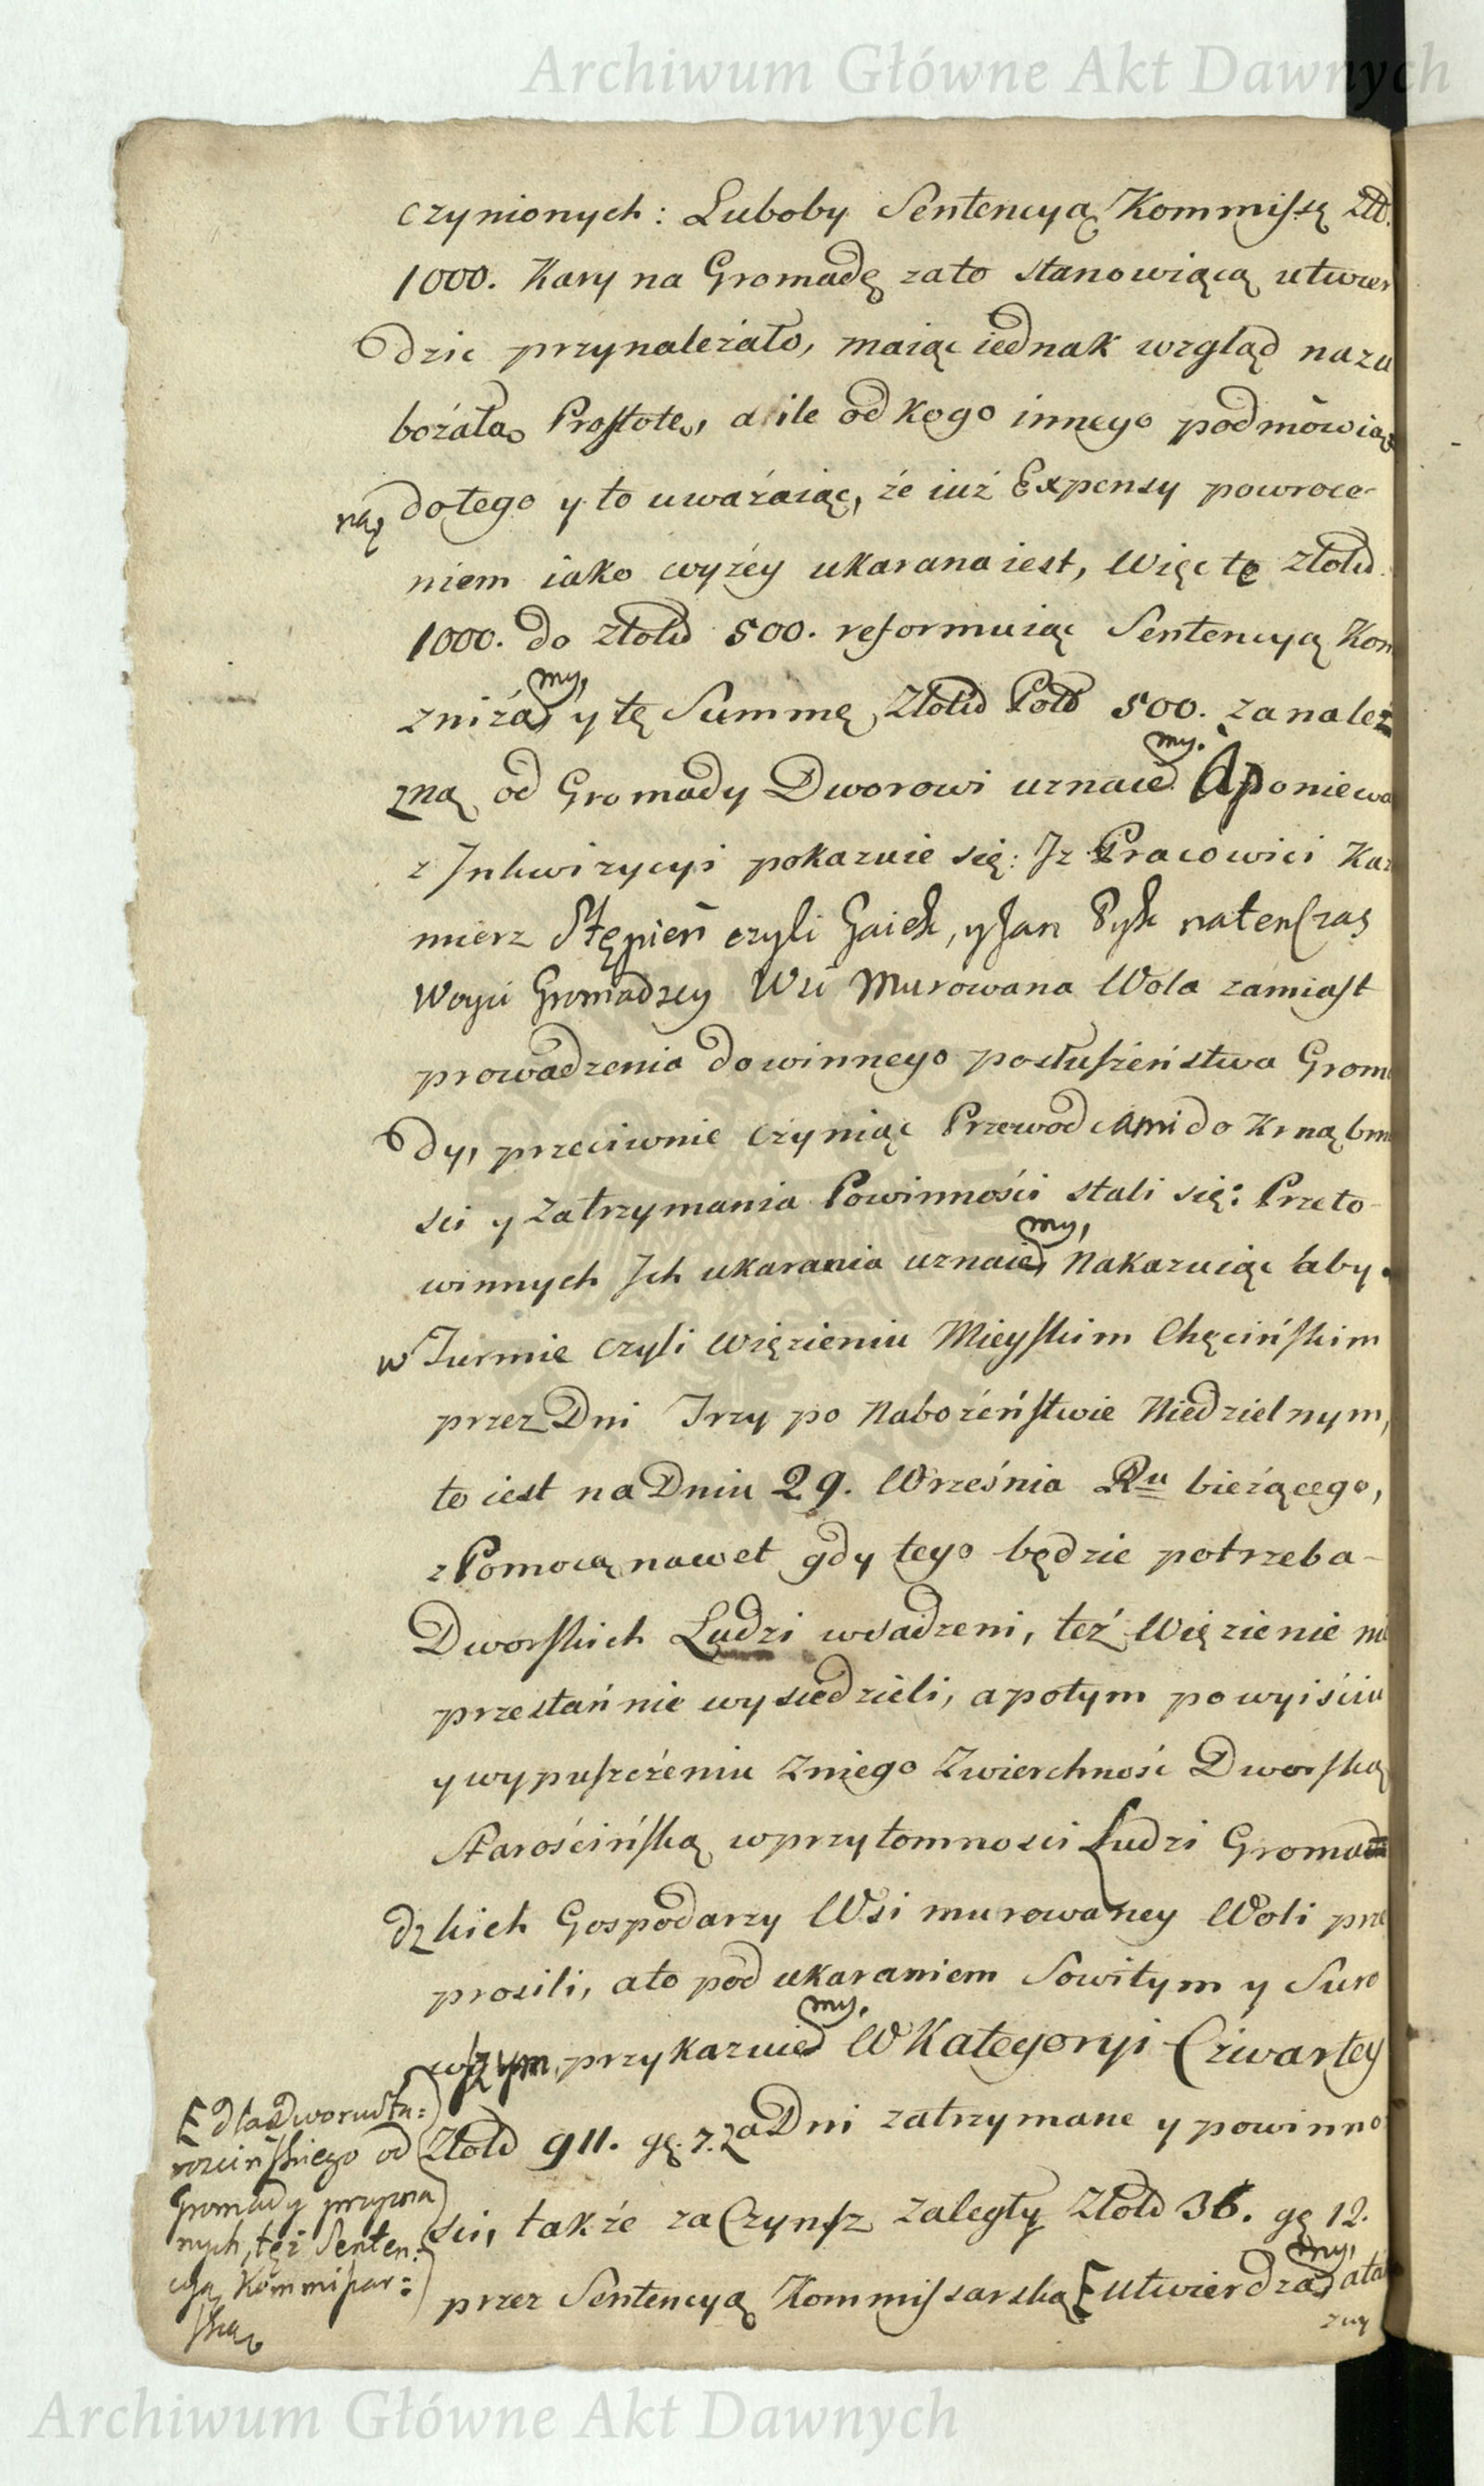 Archiwum Główne Akt Dawnych
czynionych: Luboby Sentencyą Kommissą Złł.
1000. Kary na Gromadę zato stanowiącą utwier
dzic przynależało, maiąc iednak wzgląd nazu
bożałą Prostotę, a ile od Kogo innego podmowio
ną, dotego y to uważaiąc, że iuż Expensy powroce-
niem iako wyżey ukarana iest, Więc tę złotd.
1000. do złotd 500. reformuiąc Sentencyą Kom
my,
zniża y tę Summę Złotd Pold 500. zanależ
my.
zną od Gromady Dworowi uznaie Aponiewa
z Inkwizycyi pokazuie się: Iż Pracowici Kaz
mierz Stępień czyli Gaiek, y Jan Pyk natenczas
Woyci Gromadzcy Wsi Murowana Wola zamiast
prowadzenia do winnego posłuszeństwa Groma
dy, przeciwnie czyniąc Przewodcami do Krnąbrno
sci y zatrzymania Powinności stali się: Przeto-
my,
winnych Ich ukarania uznaie, Nakazuiąc aby
w Turmie czyli więzieniu Mieyskim Chęcińskim
przez Dni Trzy po Nabożeństwie Niedzielnym,
to iest na Dniu 29. Września Ru bieżącego,
z Pomocą nawet gdy tego będzie potrzeba-
Dworskich Ludzi wsadzeni, też Więzienie nie
przestannie wysiedzieli, a potym po wyiściu
y wypuszczeniu z niego Zwierchność Dworską
Starościńską wprzytomnosci Ludzi Gromad
dzkich Gospodarzy Wsi murowaney Woli prze
prosili, a to pod ukaraniem Sowitym y Suro
my.
wszym, przykazuie W Kategoryi Czwartey
Złotd 911. gę. 7. za Dni zatrzymane y powinno
sci, także za Czynsz zaległy Złotd 36. gę 12.
my,
przez Sentencyą Kommissarską [utwierdza, a ta
zuy
[dla Dworu Sta=
roscińskiego od
Gromady przyzna
nych, też Senten=
cyą Kommissar=
ską
Archiwum Główne Akt Dawnych